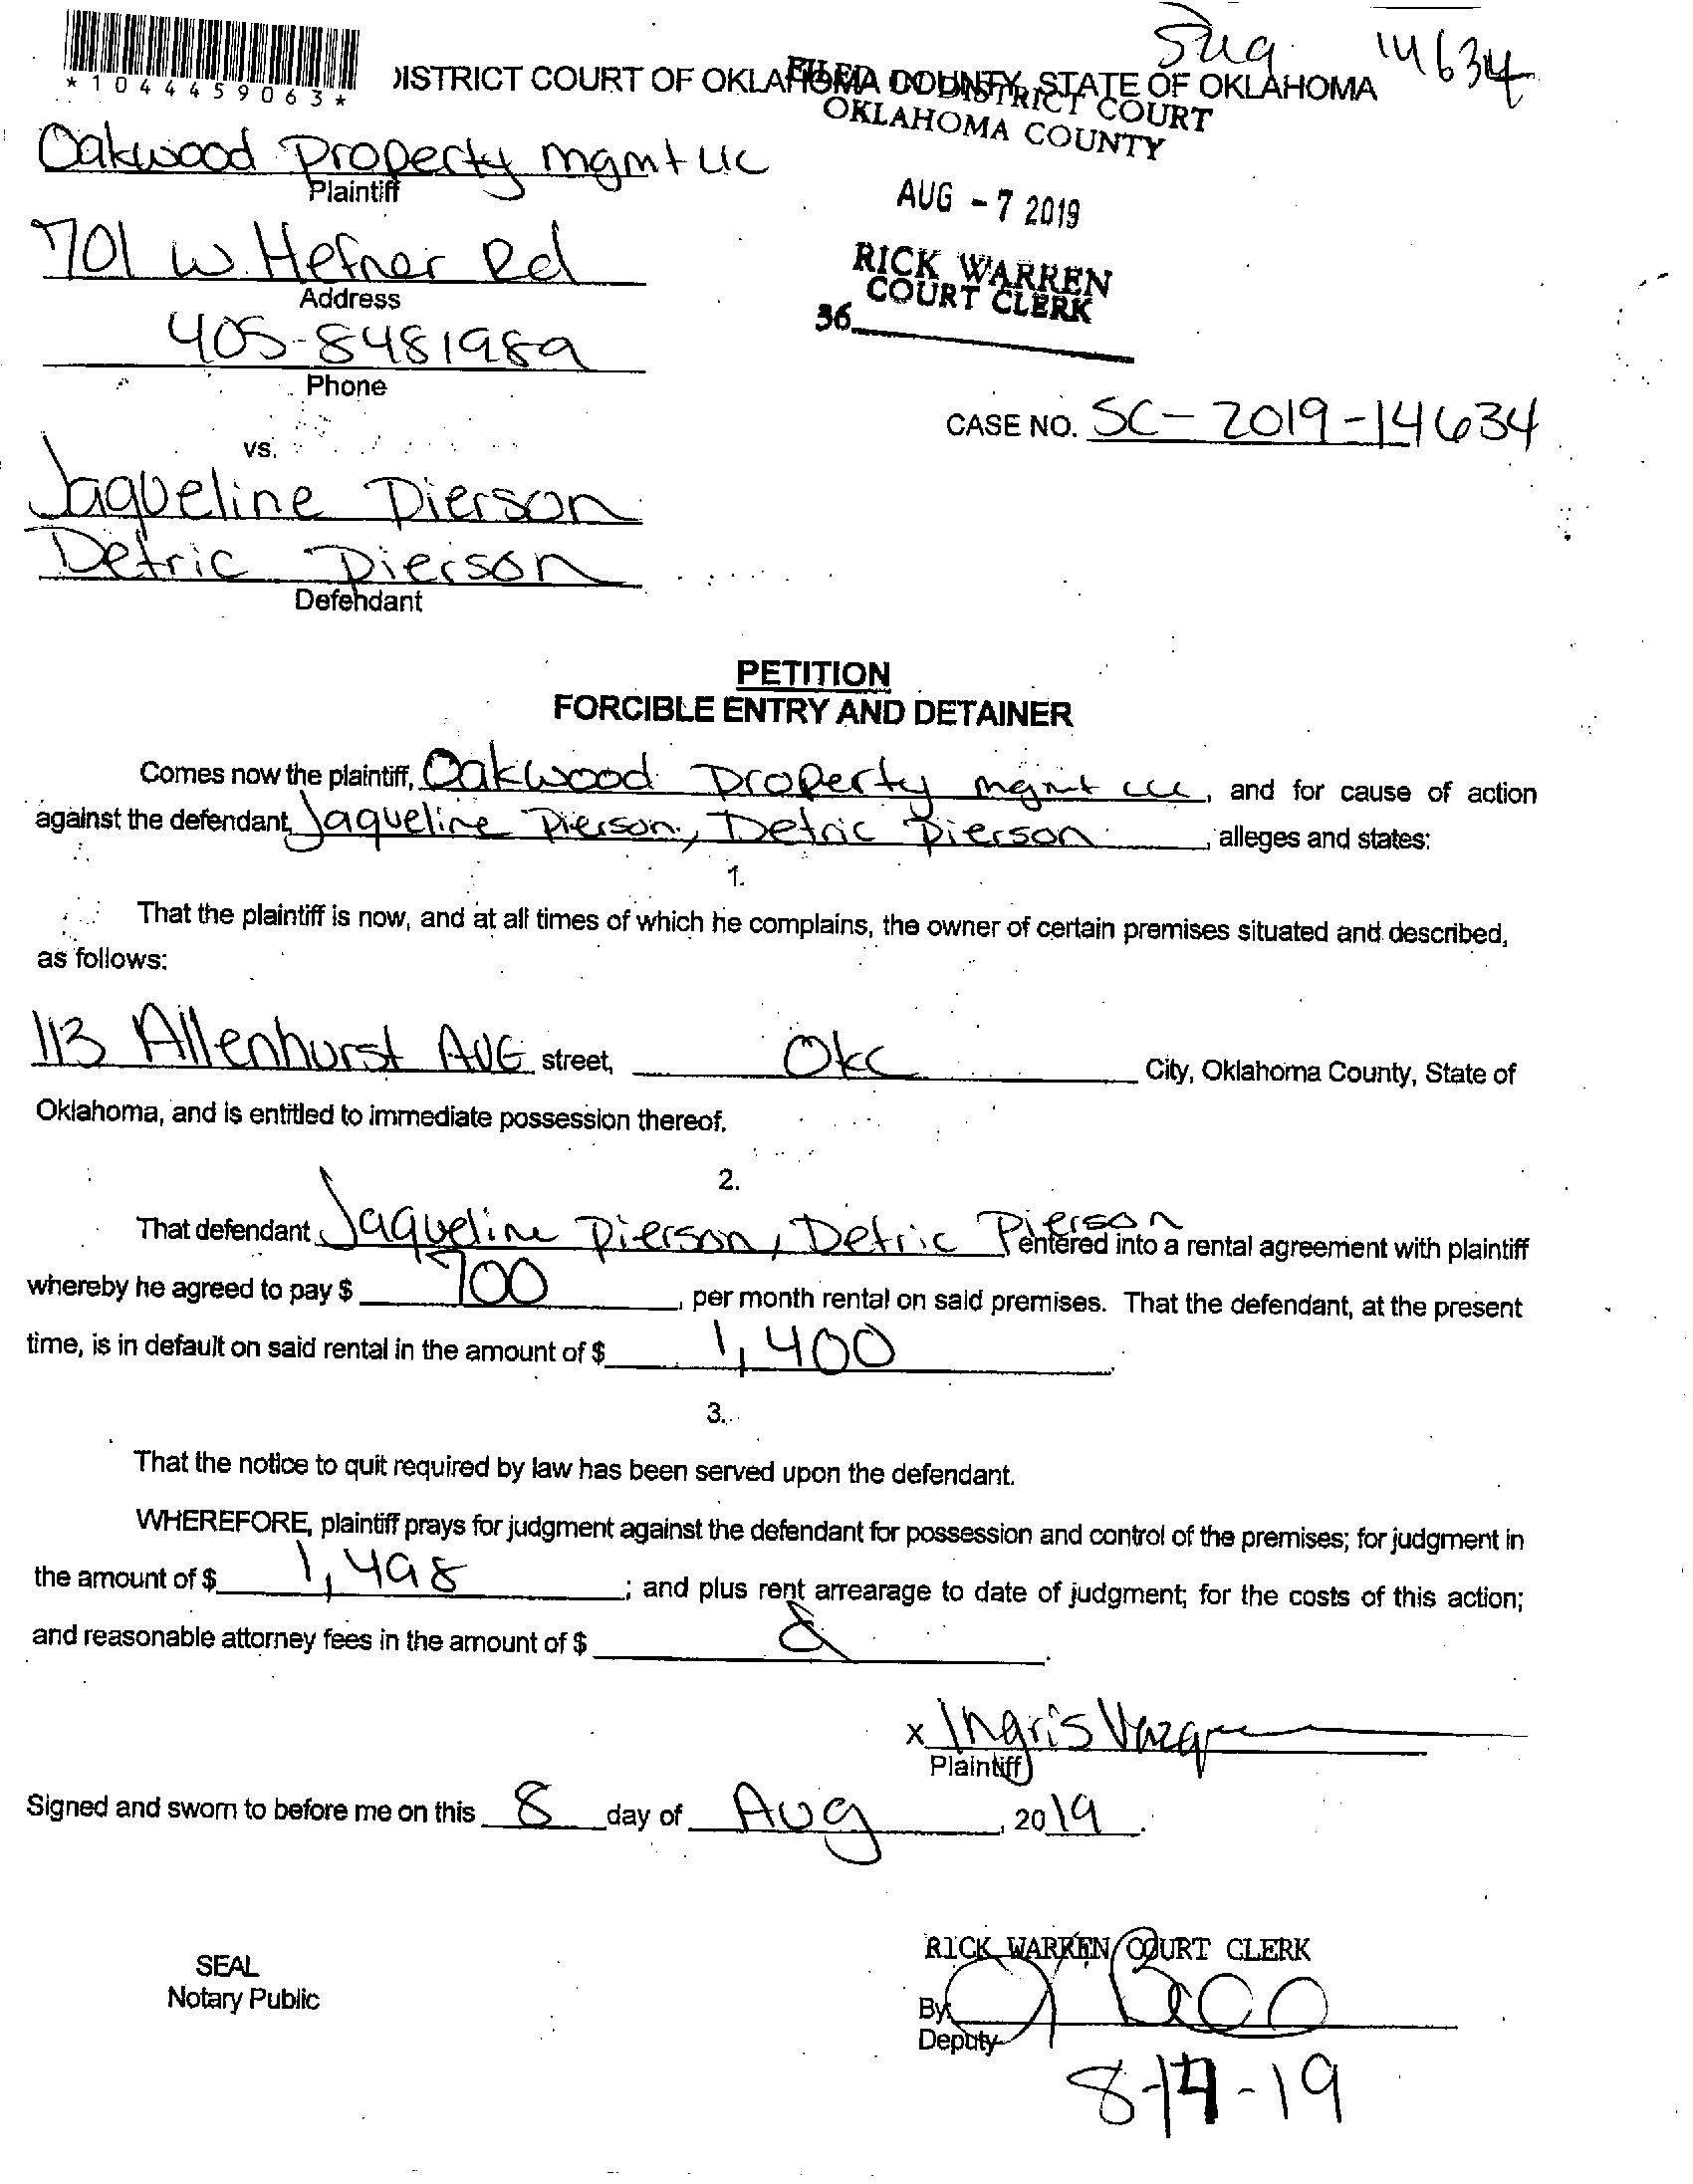 14634
*1044459063*
DISTRICT COURT OF OKLAHOMA COUNTY, STATE OF OKLAHOMA
FILED IN DISTRICT COURT
OKLAHOMA COUNTY
Oakwood Property mgmt LLC
Plaintiff
AUG - 7 2019
701 W. Hefner Rd
Address
RICK WARREN
COURT CLERK
36
405-8481989
Phone
CASE NO. SC-2019-14634
vs.
Jaqueline Pierson
Detric Pierson
Defendant
PETITION
FORCIBLE ENTRY AND DETAINER
Comes now the plaintiff, Oakwood Property mgmt LLC, and for cause of action
against the defendant, Jaqueline Pierson, Detric Pierson, alleges and states:
1.
That the plaintiff is now, and at all times of which he complains, the owner of certain premises situated and described,
as follows:
113 Allenhurst AVE street, OKC City, Oklahoma County, State of
Oklahoma, and is entitled to immediate possession thereof.
2.
That defendant Jaqueline Pierson, Detric Pierson entered into a rental agreement with plaintiff
whereby he agreed to pay $ 700, per month rental on said premises. That the defendant, at the present
time, is in default on said rental in the amount of $ 1,400.
3.
That the notice to quit required by law has been served upon the defendant.
WHEREFORE, plaintiff prays for judgment against the defendant for possession and control of the premises; for judgment in
the amount of $ 1,498; and plus rent arrearage to date of judgment; for the costs of this action;
and reasonable attorney fees in the amount of $
x Ingris
Plaintiff
Signed and sworn to before me on this 8 day of Aug, 2019.
RICK WARREN COURT CLERK
SEAL
Notary Public
By:
Deputy